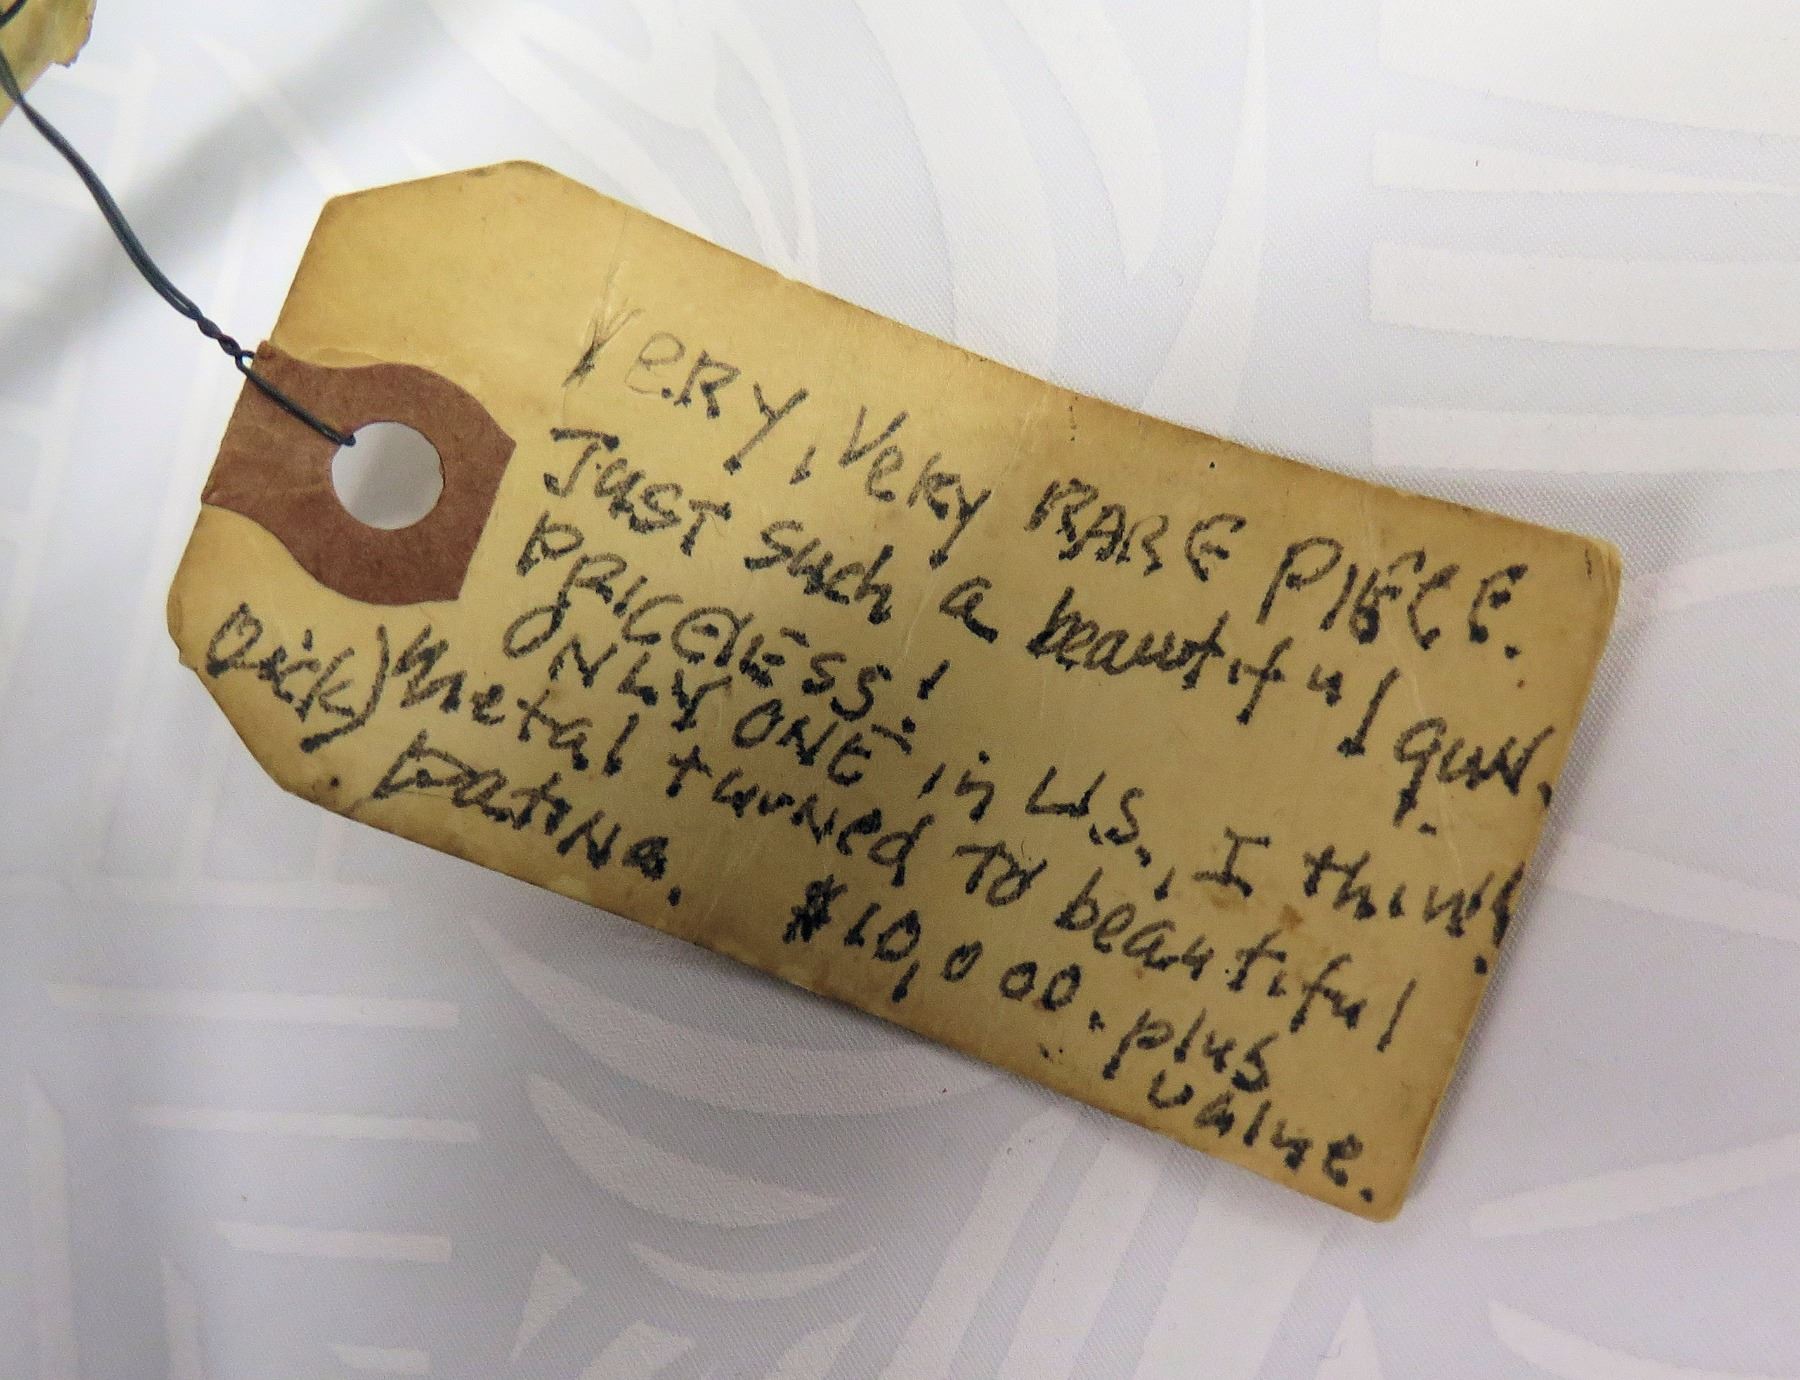 Very, Very RARE PIECE.
Just such a beautiful gun.
PRICELESS!
ONLY ONE in U.S., I think.
Dick) Metal turned To beautiful
patina. $10,000. plus
value.